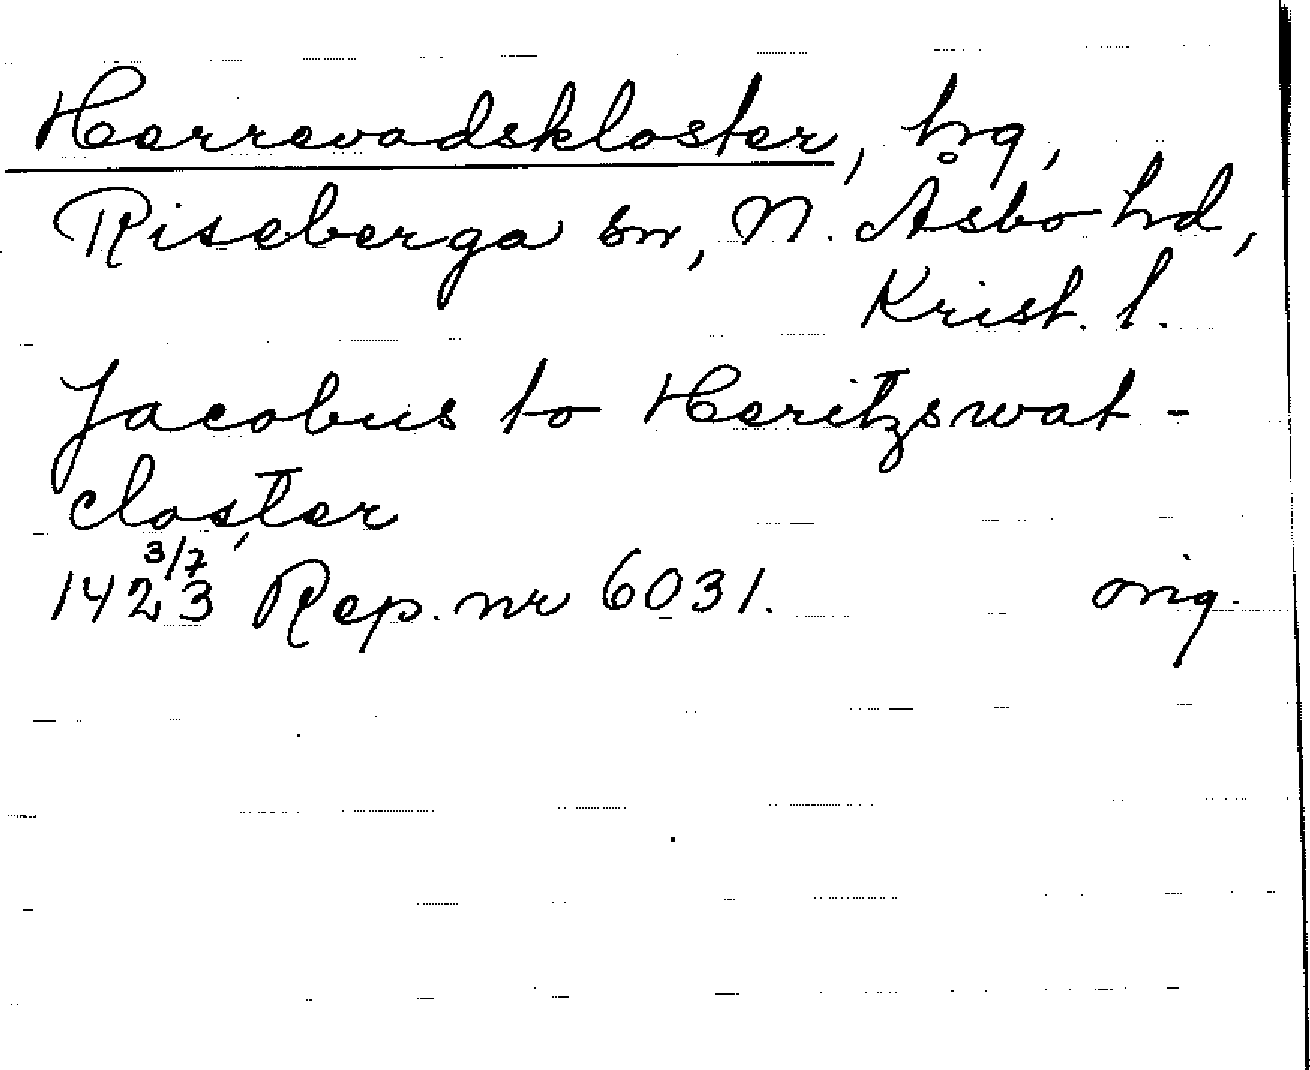 Herrevadskloster, hg,
Riseberga sn, N. Åsbo hd,
Krist. l.
Jacobus to Heritzswat-
closter
1423 3/7 Rep. nr 6031. orig.